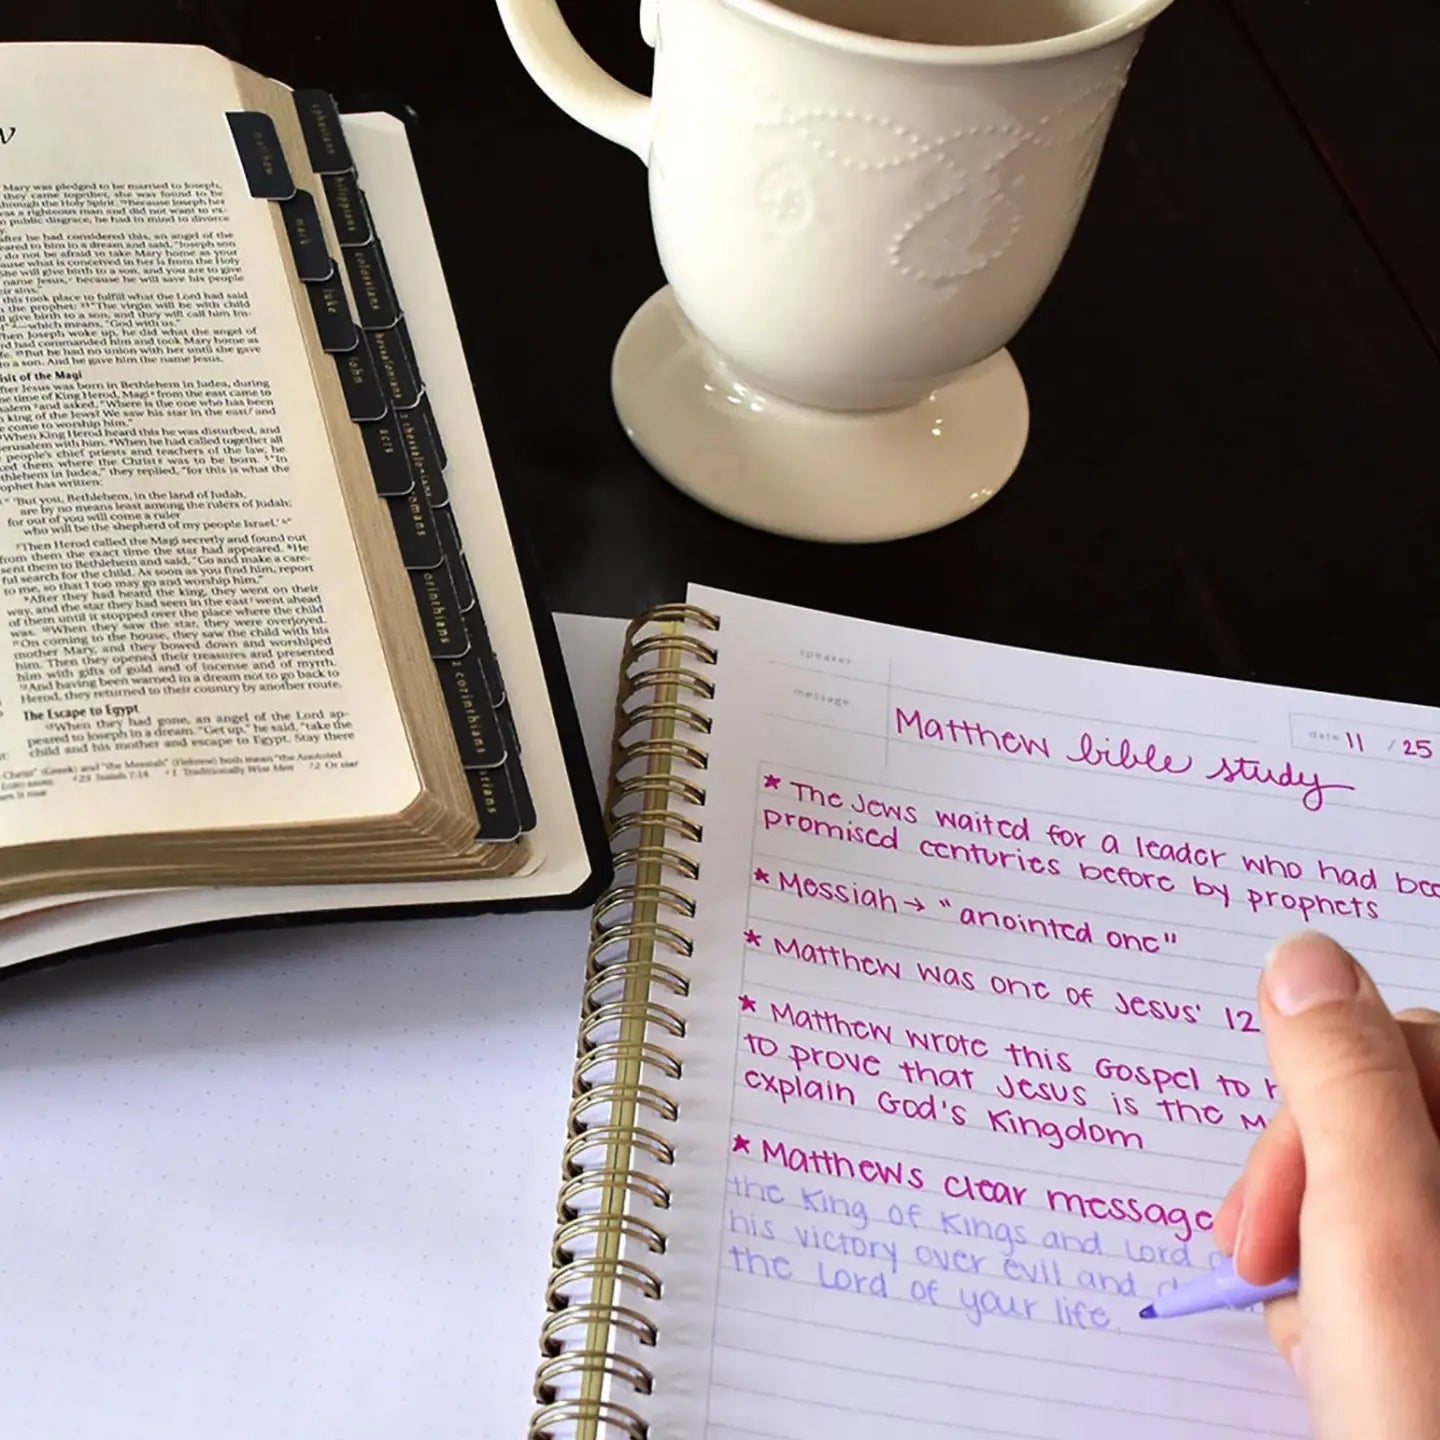 Mary was pledged to be married to Joseph,
they came together, she was found to be
through the Holy Spirit. Because Joseph her
was a righteous man and did not want to ex-
public disgrace, he had in mind to divorce
after he had considered this, an angel of the
appeared to him in a dream and said, "Joseph son
do not be afraid to take Mary home as your
because what is conceived in her is from the Holy
She will give birth to a son, and you are to give
name Jesus, because he will save his people
their sins."
this took place to fulfill what the Lord had said
the prophet: 23"The virgin will be with child
give birth to a son, and they will call him Im-
—which means, "God with us."
When Joseph woke up, he did what the angel of
had commanded him and took Mary home as
25But he had no union with her until she gave
to a son. And he gave him the name Jesus.
Visit of the Magi
After Jesus was born in Bethlehem in Judea, during
time of King Herod, Magi from the east came to
and asked, "Where is the one who has been
king of the Jews? We saw his star in the east and
come to worship him."
When King Herod heard this he was disturbed, and
Jerusalem with him. 4When he had called together all
people's chief priests and teachers of the law, he
asked them where the Christ was to be born. 5"In
Bethlehem in Judea," they replied, "for this is what the
prophet has written:
6"But you, Bethlehem, in the land of Judah,
are by no means least among the rulers of Judah;
for out of you will come a ruler
who will be the shepherd of my people Israel.'"
7Then Herod called the Magi secretly and found out
from them the exact time the star had appeared. 8He
sent them to Bethlehem and said, "Go and make a care-
ful search for the child. As soon as you find him, report
to me, so that I too may go and worship him."
9After they had heard the king, they went on their
way, and the star they had seen in the east went ahead
of them until it stopped over the place where the child
was. 10When they saw the star, they were overjoyed.
11On coming to the house, they saw the child with his
mother Mary, and they bowed down and worshiped
him. Then they opened their treasures and presented
him with gifts of gold and of incense and of myrrh.
12And having been warned in a dream not to go back to
Herod, they returned to their country by another route.
The Escape to Egypt
13When they had gone, an angel of the Lord ap-
peared to Joseph in a dream. "Get up," he said, "take the
child and his mother and escape to Egypt. Stay there
matthew
mark
luke
john
acts
romans
corinthians
2 corinthians
ephesians
philippians
colossians
thessalonians
2 thessalonians
speaker
message
Matthew bible study
date 11 / 25
* The Jews waited for a leader who had bee
promised centuries before by prophets
* Messiah → "anointed one"
* Matthew was one of Jesus' 12
* Matthew wrote this Gospel to
to prove that Jesus is the M
explain God's Kingdom
* Matthews clear message
the King of Kings and Lord
his victory over evil and
the Lord of your life.